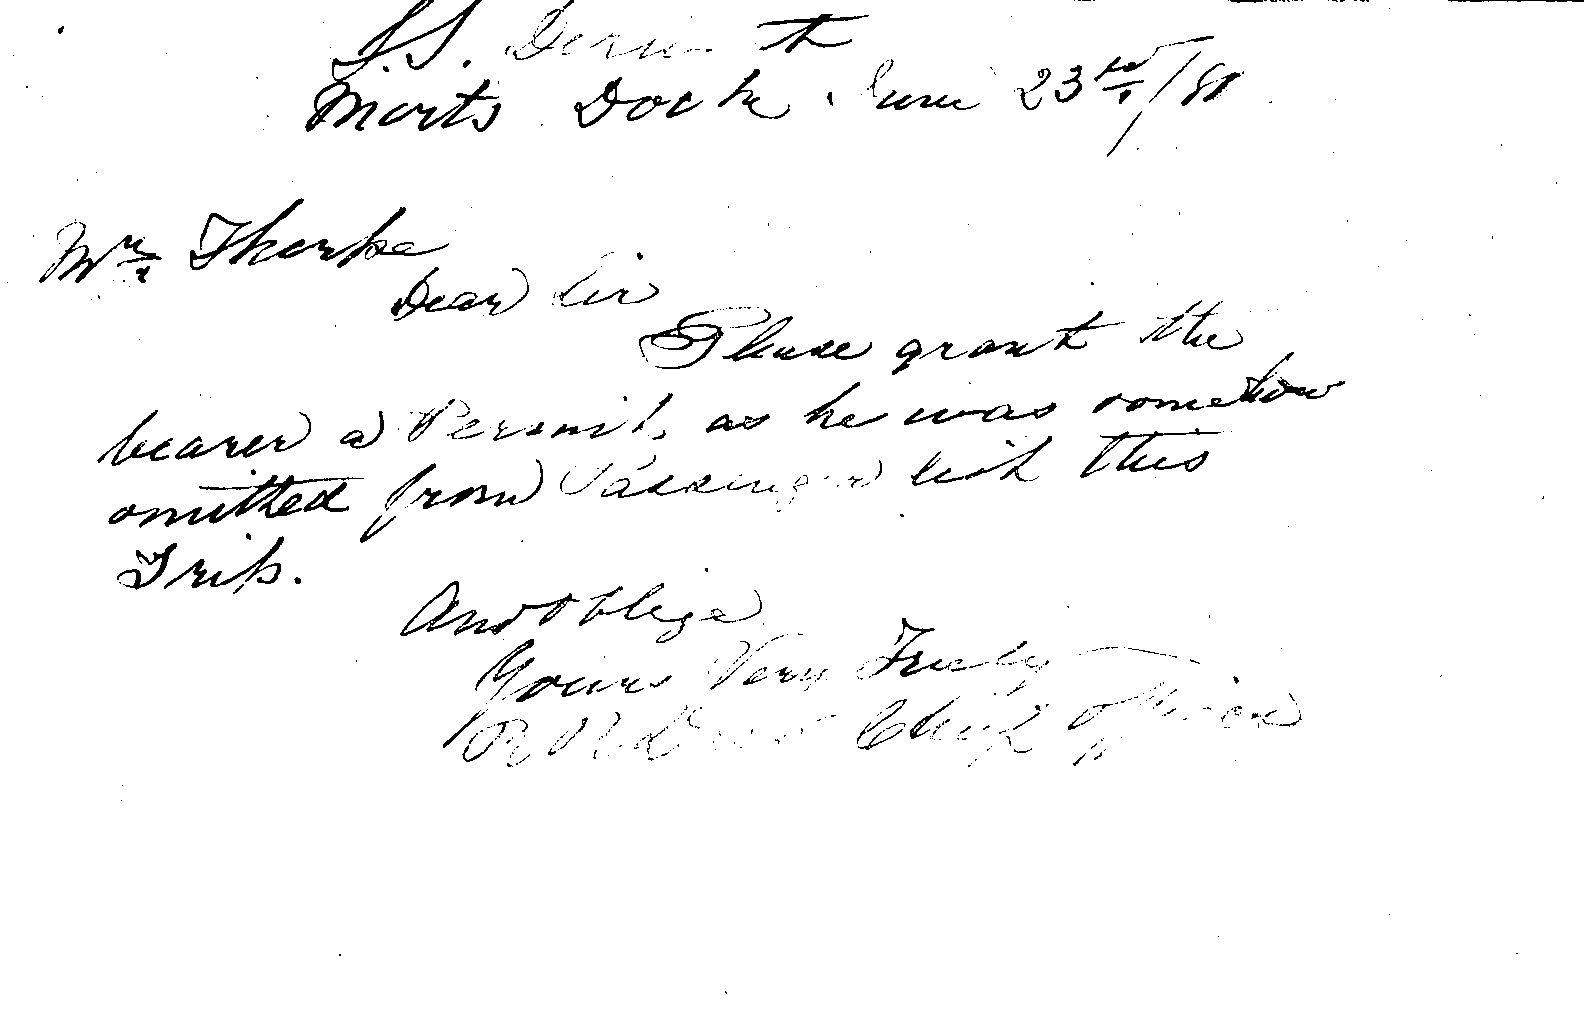 S.S. Derwent
Morts Dock. June 23rd/81
Mr. Thorpe
Dear Sir
Please grant the
bearer a Permit, as he was somehow
omitted from Passenger list this
Trip.
And Oblige
Yours Very Truly
Chief Officer